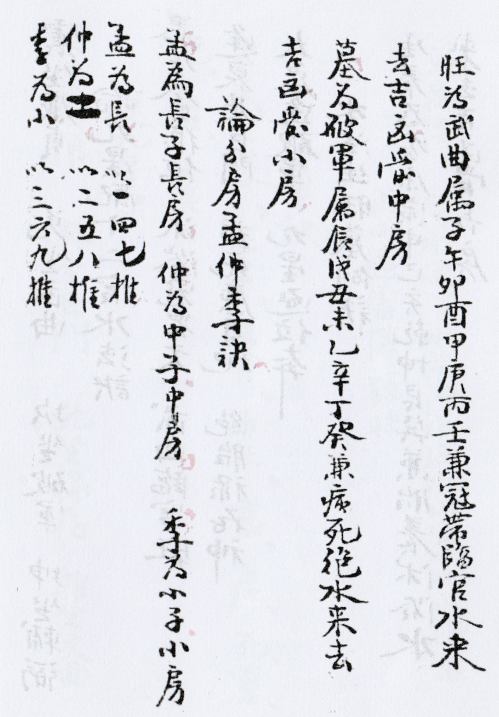 旺为武曲属子午卯酉甲庚丙壬兼冠带临官水来
去吉凶应中房
墓为破军属辰戌丑未乙辛丁癸兼病死绝水来去
吉凶应小房
論分房孟仲季訣
孟為長子長房 仲为中子中房 季为小子小房
孟为長 以一四七推
仲为二 以二五八推
季为小 以三六九推